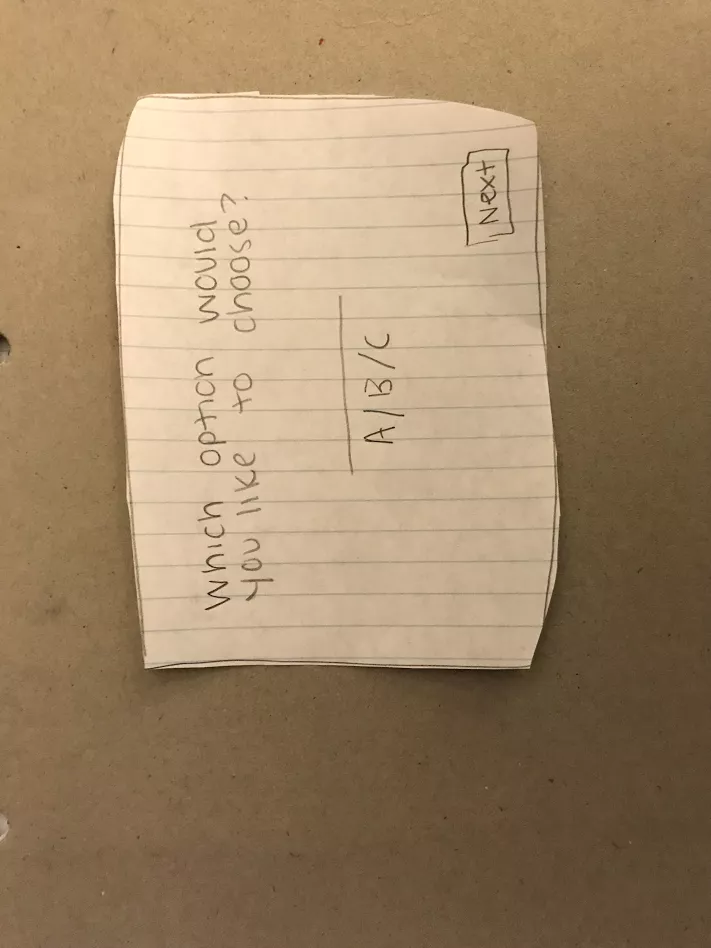 Which option would
you like to choose?
A/B/C
Next